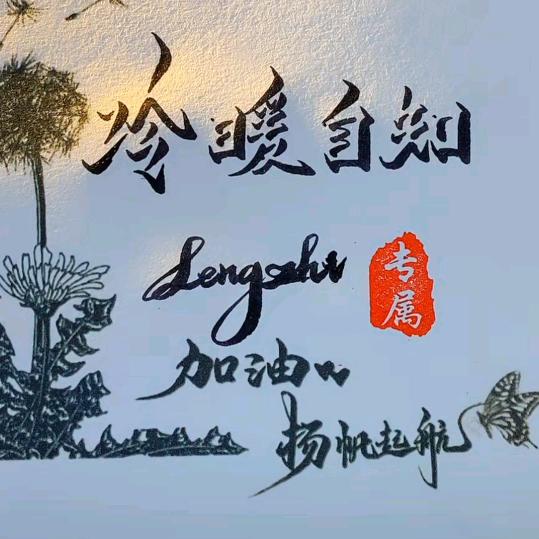 冷暖自知
Lengzhi
专属
加油
扬帆起航